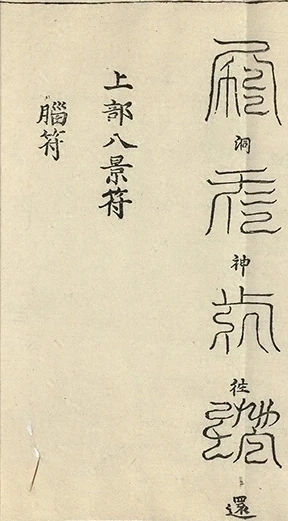 洞
神
往
還
上部八景符
腦符